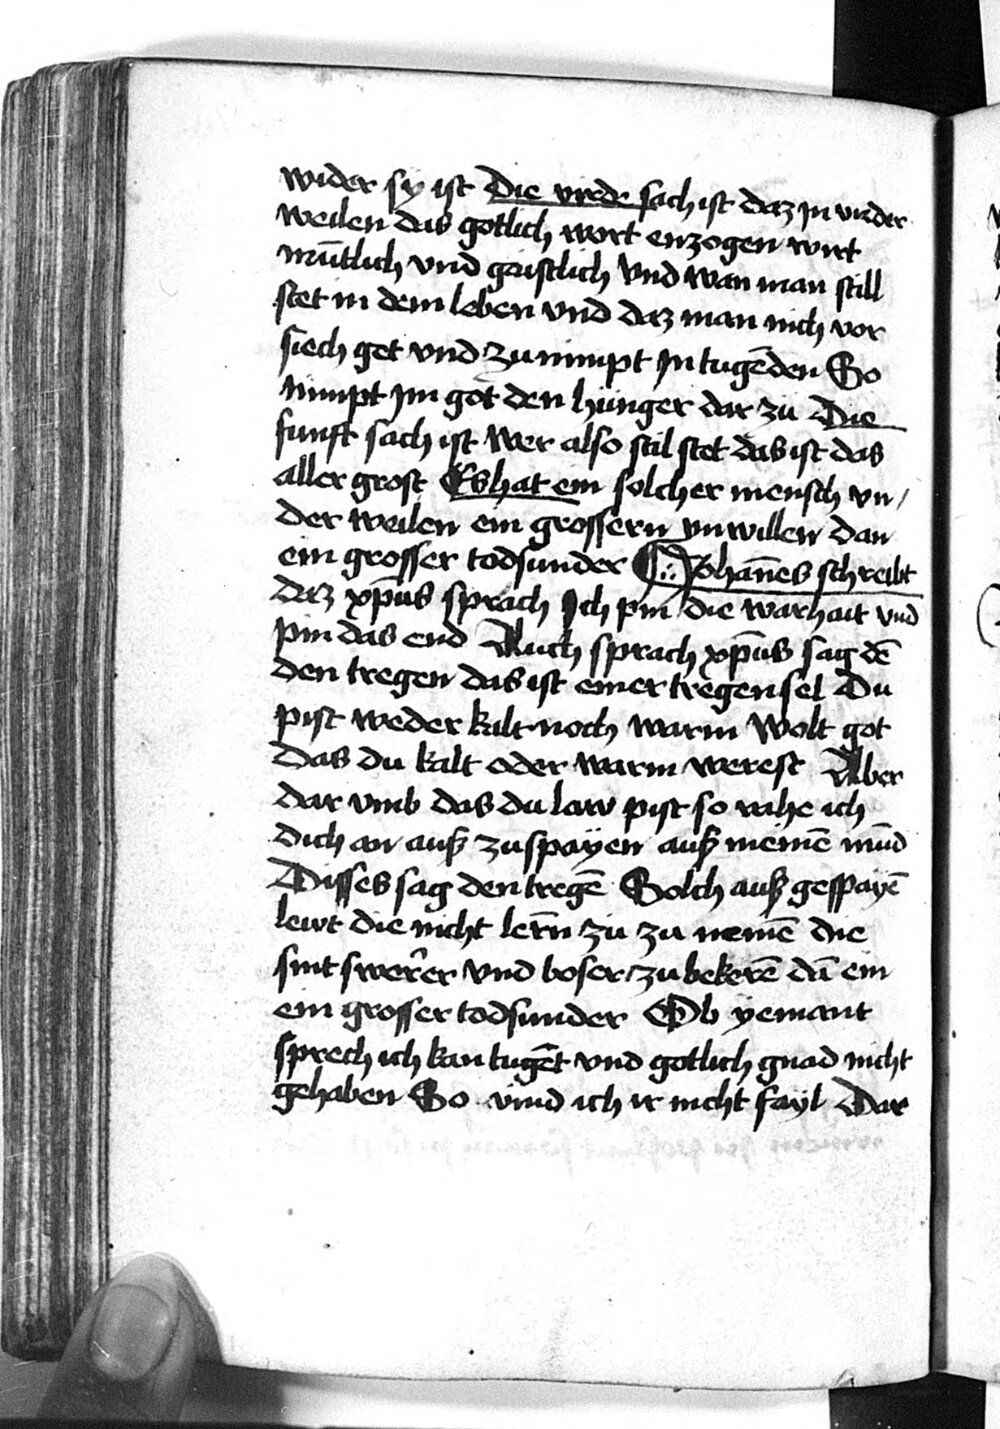 wider sy ist Die vierde sach ist daz jn vnder
weilen das gotlich wort enzogen wirt
mūtlich vnd gaistlich Vnd wan man still
stet in dem leben vnd daz man nich vor
siech get vnd zu nimpt jn tugēden So
nimpt jm got den hunger dar zu Die
funft sach ist Wer also stil stet das ist das
aller grost Es hat ein solcher mensch vn/
der weilen ein grossern ynwillen dan
ein grosser todsunder Johañes schreibt
daz xp̄us sprach Ich pin die warhait vnd
pin das end Auch sprach xp̄us sag dē
den tregen das ist einer tregen sel Du
pist weder kalt noch warm Wolt got
Das du kalt oder warm werest Aber
dar vmb das du law pist so vahe ich
dich an auß zuspayen auß meinē mūd
Disses sag den tregē Solch auß gespayē
lewt die nicht lern̄ zu zu nemē die
sint swerer vnd boser zu bekerē dā ein
ein grosser todsunder Ob yemant
sprech ich kan tugēt vnd gotlich gnad nicht
gehaben So vind ich ir nicht fayl Dar